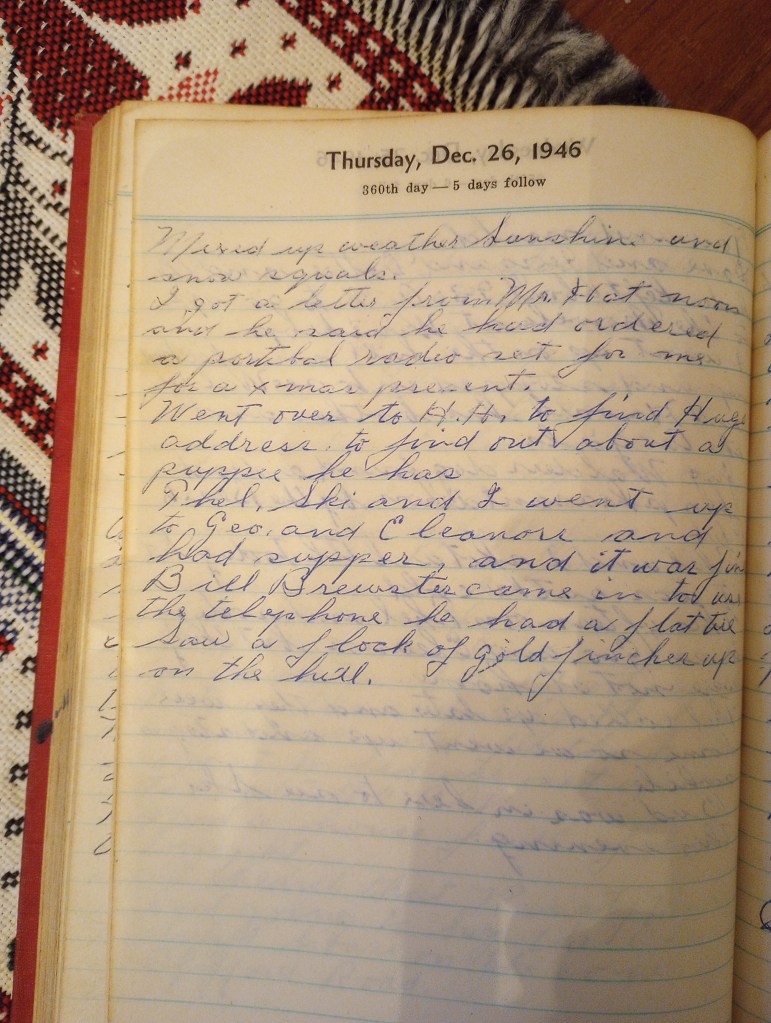 Thursday, Dec. 26, 1946
360th day — 5 days follow
Mixed up weather Sunshine and
snow squals.
I got a letter from Mr. H at noon
and he said he had ordered
a portibal radio set for me
for a x-mas present.
Went over to H.H. to find Hugs
address to find out about a
puppie he has
Thel, Ski and I went up
to Geo. and Eleanors and
had supper, and it was fine
Bill Brewster came in to use
the telephone he had a flat tire
Saw a flock of gold finches up
on the hill.